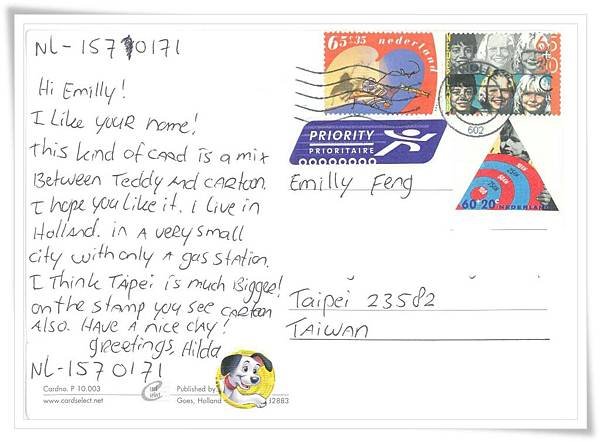 NL-1570171
Hi Emilly!
I Like your name!
This kind of card is a mix
Between Teddy and cartoon.
I hope you like it. I live in
Holland. in a very small
city with only a gas station.
I Think Taipei is much Bigger!
on the stamp you see cartoon
also. Have a nice day!
greetings, Hilda
NL-1570171
Cardno. P 10.003
www.cardselect.net
Published by
Goes, Holland
12883
65+35 nederland
65
602
PRIORITY
PRIORITAIRE
60+20c NEDERLAND
Emilly Feng
Taipei 23582
TAIWAN